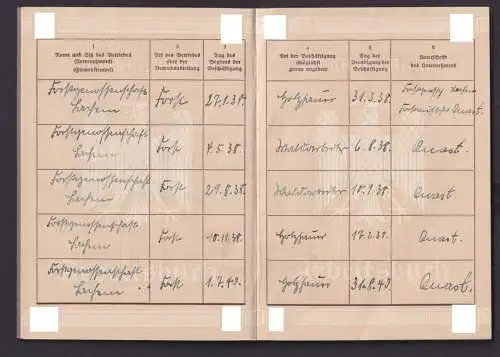 1
Name und Sitz des Betriebes
(Unternehmens)
(Firmenstempel)
2
Art des Betriebes
oder der
Betriebsabteilung
3
Tag des
Beginns der
Beschäftigung
4
Art der Beschäftigung
(möglichst
genau angeben)
5
Tag der
Beendigung der
Beschäftigung
6
Unterschrift
des Unternehmers
Forstgenossenschaft
Lachem
Forst
27.1.38.
Holzhauer
31.3.38.
Quast.
Forstgenossenschaft
Lachem
Forst
4.5.38.
Waldarbeiter
6.8.38.
Quast.
Forstgenossenschaft
Lachem
Forst
29.8.38.
Waldarbeiter
10.9.38.
Quast.
Forstgenossenschaft
Lachem
Forst
10.11.38.
Holzhauer
17.2.39.
Quast.
Forstgenossenschaft
Lachem
Forst
1.7.43.
Holzhauer
31.8.43.
Quast.